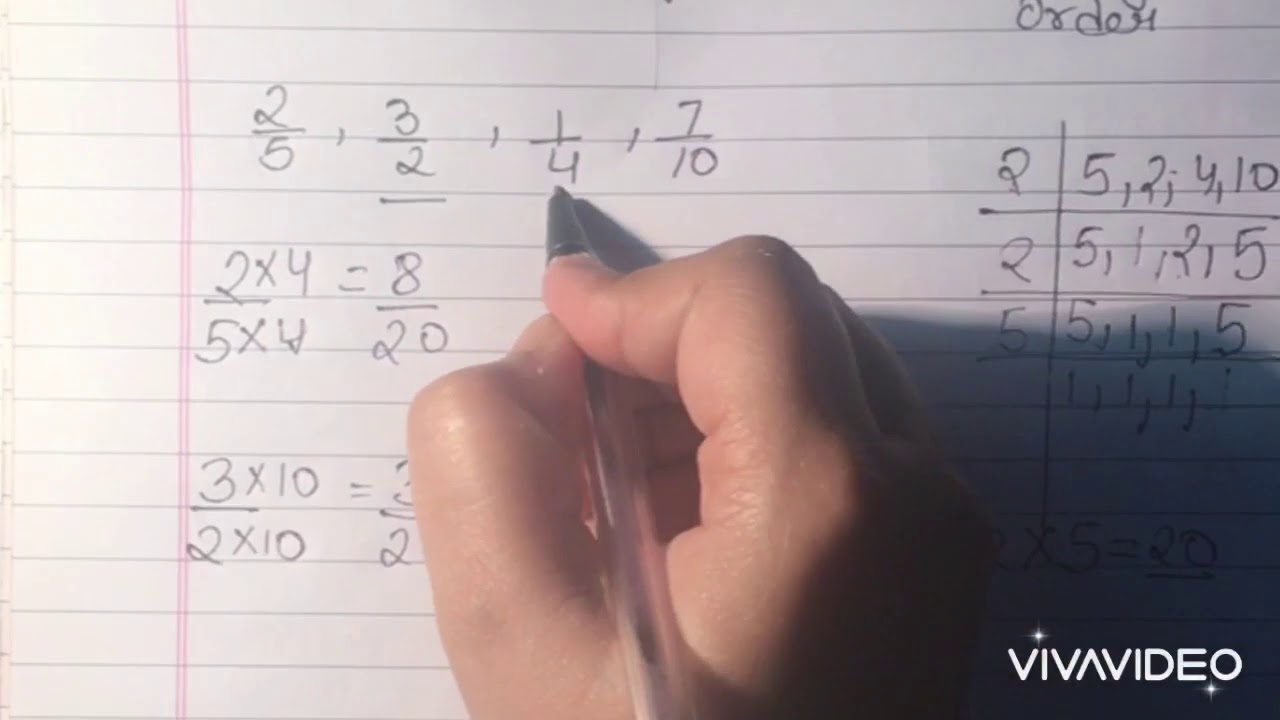 Order
2/5 , 3/2 , 1/4 , 7/10
2×4/5×4 = 8/20
3×10/2×10 =
2 | 5, 2, 4, 10
2 | 5, 1, 2, 5
5 | 5, 1, 1, 5
1, 1, 1, 1
×5=20
VIVAVIDEO